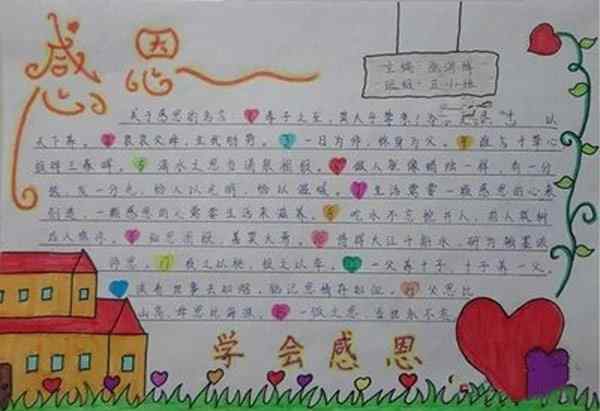 感恩
主编:
班级:
关于感恩的名言: 1 孝子之至,莫大乎尊亲; 以
天下养。2 哀哀父母,生我劬劳。3 一日为师,终身为父。4 谁言寸草心
报得三春晖。5 滴水之恩当涌泉相报。6 做人就像蜡烛一样,有一分
热,发一分光,给人以光明,给以温暖。7 生活需要一颗感恩的心来
创造,一颗感恩的心需要生活来滋养。8 吃水不忘挖井人,前人栽树
后人乘凉。9 知恩图报,善莫大焉。10
师恩。11 投之以桃,报之以李。12 一父养十子,十子养一父。
13 父恩比
山高,母恩比海深。15 一饭之恩,当永不忘。
学会感恩